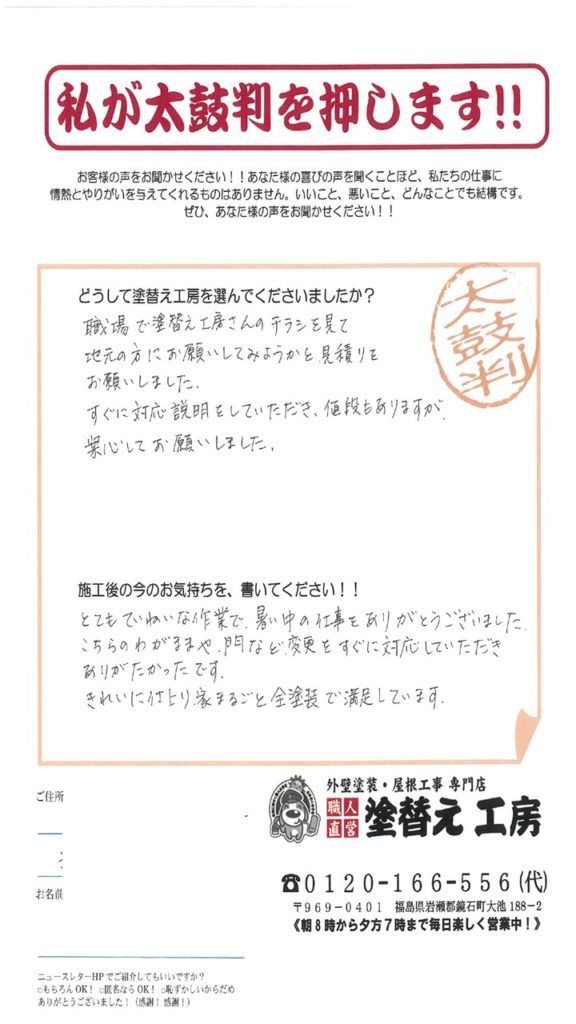 私が太鼓判を押します!!
お客様の声をお聞かせください！！あなた様の喜びの声を聞くことほど、私たちの仕事に
情熱とやりがいを与えてくれるものはありません。いいこと、悪いこと、どんなことでも結構です。
ぜひ、あなた様の声をお聞かせください！！
どうして塗替え工房を選んでくださいましたか？
太鼓判
職場で塗替え工房さんのチラシを見て
地元の方にお願いしてみようかと見積りを
お願いしました。
すぐに対応説明をしていただき、値段もありますが、
安心してお願いしました。
施工後の今のお気持ちを、書いてください！！
とてもていねいな作業で、暑い中の仕事をありがとうございました。
こちらのわがままや、門など変更をすぐに対応していただき
ありがたかったです。
きれいに仕上り、家まるごと全塗装で満足しています。
外壁塗装・屋根工事 専門店
職人直営 塗替え工房
ご住所
お名前
☎0120-166-556(代)
〒969-0401 福島県岩瀬郡鏡石町大池188-2
《朝8時から夕方7時まで毎日楽しく営業中！》
ニュースレターHPでご紹介してもいいですか？
□もちろんOK！ □匿名ならOK！ □恥ずかしいからだめ
ありがとうございました！（感謝！感謝！）